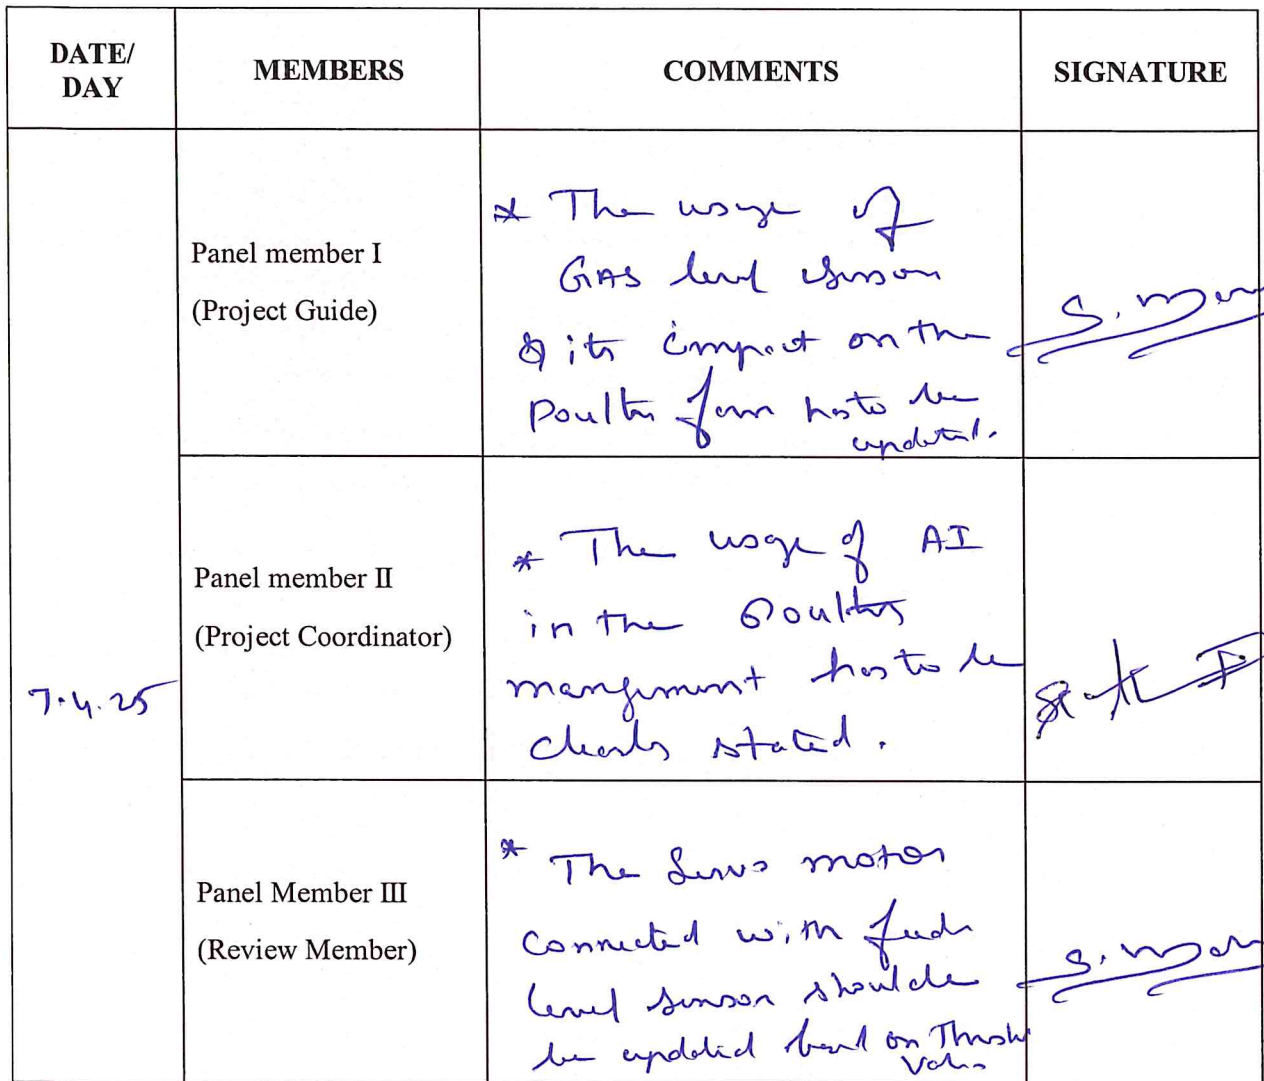 DATE/
DAY
MEMBERS
COMMENTS
SIGNATURE
7.4.25
Panel member I
(Project Guide)
* The usage of
GAS level sensor
& its impact on the
Poultry farm has to be
updated.
Panel member II
(Project Coordinator)
* The usage of AI
in the Poultry
management has to be
clearly stated.
Panel Member III
(Review Member)
* The Servo motor
connected with feed
level sensor should
be updated based on